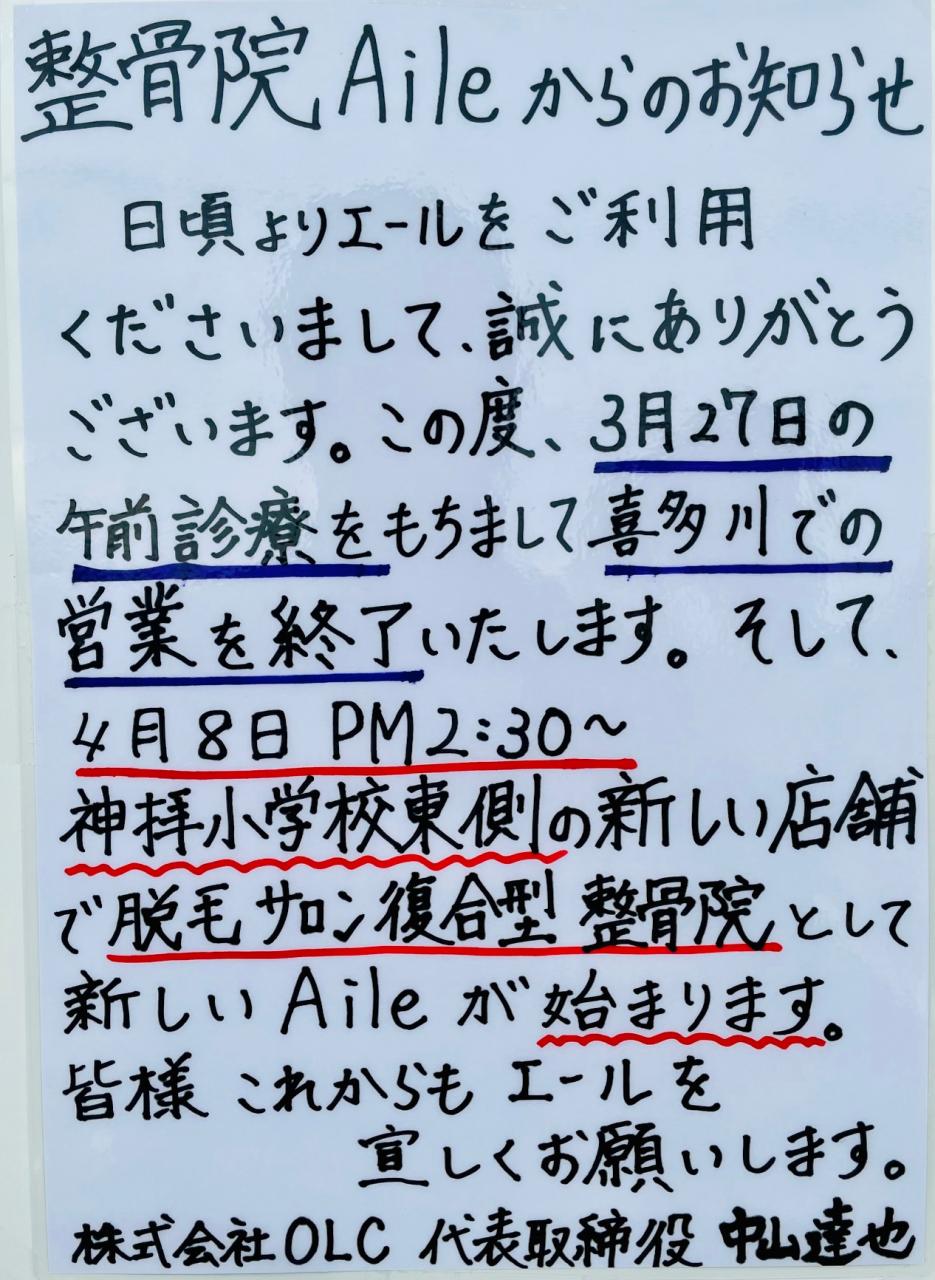 整骨院Aileからのお知らせ
日頃よりエールをご利用
くださいまして、誠にありがとう
ございます。この度、3月27日の
午前診療をもちまして喜多川での
営業を終了いたします。そして、
4月8日 PM2:30~
神拝小学校東側の新しい店舗
で脱毛サロン復合型 整骨院として
新しいAileが始まります。
皆様これからもエールを
宜しくお願いします。
株式会社OLC 代表取締役 中山達也